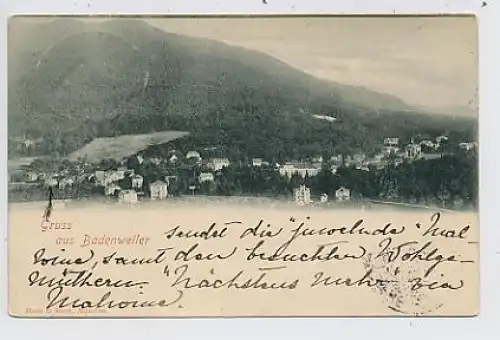 Gruss
aus Badenweiler
sendet die "juwelnde" Mal-
wine, samt den besuchten Wohlge-
müthern. "Nächstens mehr" via
Malwine